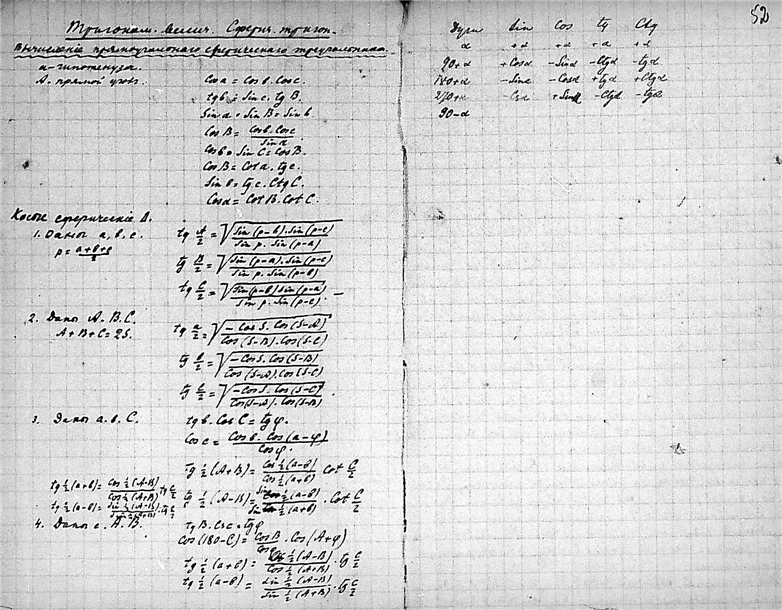 Тригоном. велич. Сферич. тригон.
Вычисленіе прямоугольнаго сферическаго треугольника
a - гипотенуза.
A - прямой уголъ.
Cos a = Cos b. Cos c.
tg b = Sin c. tg B.
Sin a = Sin B = Sin b
Cos B = Cos b. Cos c / Sin a
Cos b = Sin C = Cos B.
Cos B = Cot a. tg c.
Sin b = tg c. Ctg C.
Cos a = Cot B. Cot C.
Косые сферическіе Δ.
1. Даны a, b, c.
p = a+b+c / 2
tg A/2 = √ Sin (p-b). Sin (p-c) / Sin p. Sin (p-a)
tg B/2 = √ Sin (p-a). Sin (p-c) / Sin p. Sin (p-b)
tg C/2 = √ Sin (p-b) Sin (p-a) / Sin p. Sin (p-c).
2. Даны A. B. C.
A + B + C = 2S.
tg a/2 = √ - Cos S. Cos (S-A) / Cos (S-B). Cos (S-C)
tg b/2 = √ - Cos S. Cos (S-B) / Cos (S-A). Cos (S-C)
tg c/2 = √ - Cos S. Cos (S-C) / Cos (S-A). Cos (S-B)
3. Даны a. b. C.
tg b. Cos C = tg φ.
Cos c = Cos b. Cos (a-φ) / Cos φ.
tg ½ (A+B) = Cos ½ (a-b) / Cos ½ (a+b) Cot C/2
tg ½ (A-B) = Sin ½ (a-b) / Sin ½ (a+b) . Cot C/2
tg ½ (a+b) = Cos ½ (A-B) / Cos ½ (A+B) tg c/2
tg ½ (a-b) = Sin ½ (A-B) / Sin ½ (A+B) . tg c/2
4. Даны c. A. B.
tg B. Cos c = tg φ
Cos (180-C) = Cos B / Cos φ . Cos (A+φ)
tg ½ (a+b) = Cos ½ (A-B) / Cos ½ (A+B) . tg c/2
tg ½ (a-b) = Sin ½ (A-B) / Sin ½ (A+B) . tg c/2
52
Дуги Sin Cos tg Ctg
α +α +α +α +α
90+α +Cosα -Sinα -Ctgα -tgα
180+α -Sinα -Cosα +tgα +Ctgα
270+α -Cosα +Sinα -Ctgα -tgα
90-α